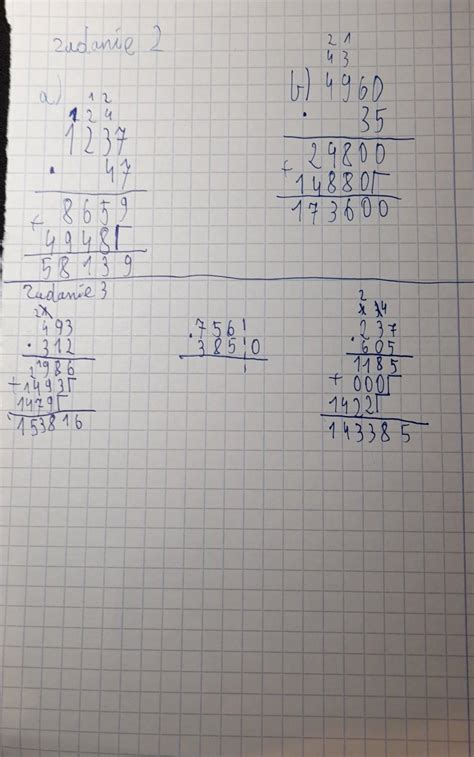 zadanie 2
a)
1 2
1 2 4
1237
· 47
8659
+ 4948
58139
b)
2 1
4 3
4960
· 35
24800
+ 14880
173600
zadanie 3
493
· 312
986
+ 493
1479
153816
· 756
3850
2
237
· 605
1185
+ 000
1422
143385